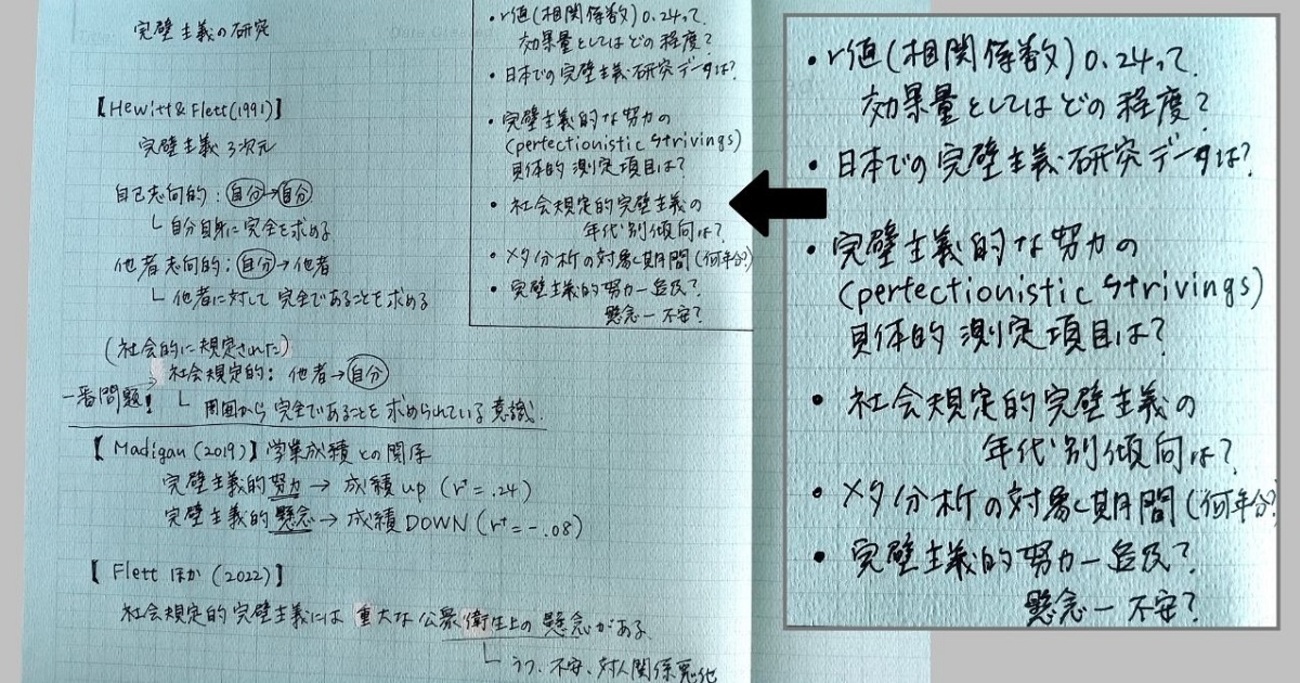 完璧主義の研究
【Hewitt & Flett(1991)】
完璧主義3次元
自己志向的:自分→自分
└ 自分自身に完全を求める
他者志向的:自分→他者
└ 他者に対して完全であることを求める
(社会的に規定された)
社会規定的:他者→自分
一番問題!
└ 周囲から完全であることを求められている意識.
【Madigan(2019)】学業成績との関係
完璧主義的努力→成績up(r⁺=.24)
完璧主義的懸念→成績DOWN(r⁺=-.08)
【Flettほか(2022)】
社会規定的完璧主義には重大な公衆衛生上の懸念がある.
└ うつ、不安、対人関係悪化
・r値(相関係数)0.24って、
効果量としてはどの程度?
・日本での完璧主義研究データは?
・完璧主義的な努力の
(perfectionistic strivings)
具体的測定項目は?
・社会規定的完璧主義の
年代別傾向は?
・メタ分析の対象期間(何年分?)
・完璧主義的努力ー
懸念ー不安?
・r値(相関係数)0.24って、
効果量としてはどの程度?
・日本での完璧主義研究データは?
・完璧主義的な努力の
(perfectionistic strivings)
具体的測定項目は?
・社会規定的完璧主義の
年代別傾向は?
・メタ分析の対象期間(何年分?
・完璧主義的努力ー
懸念ー不安?